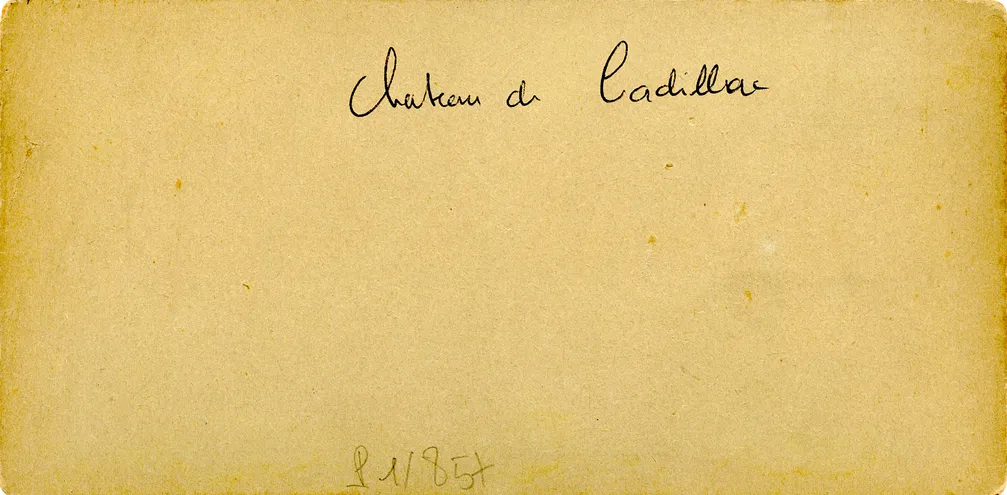 Chateau de Cadillac
P 1/857